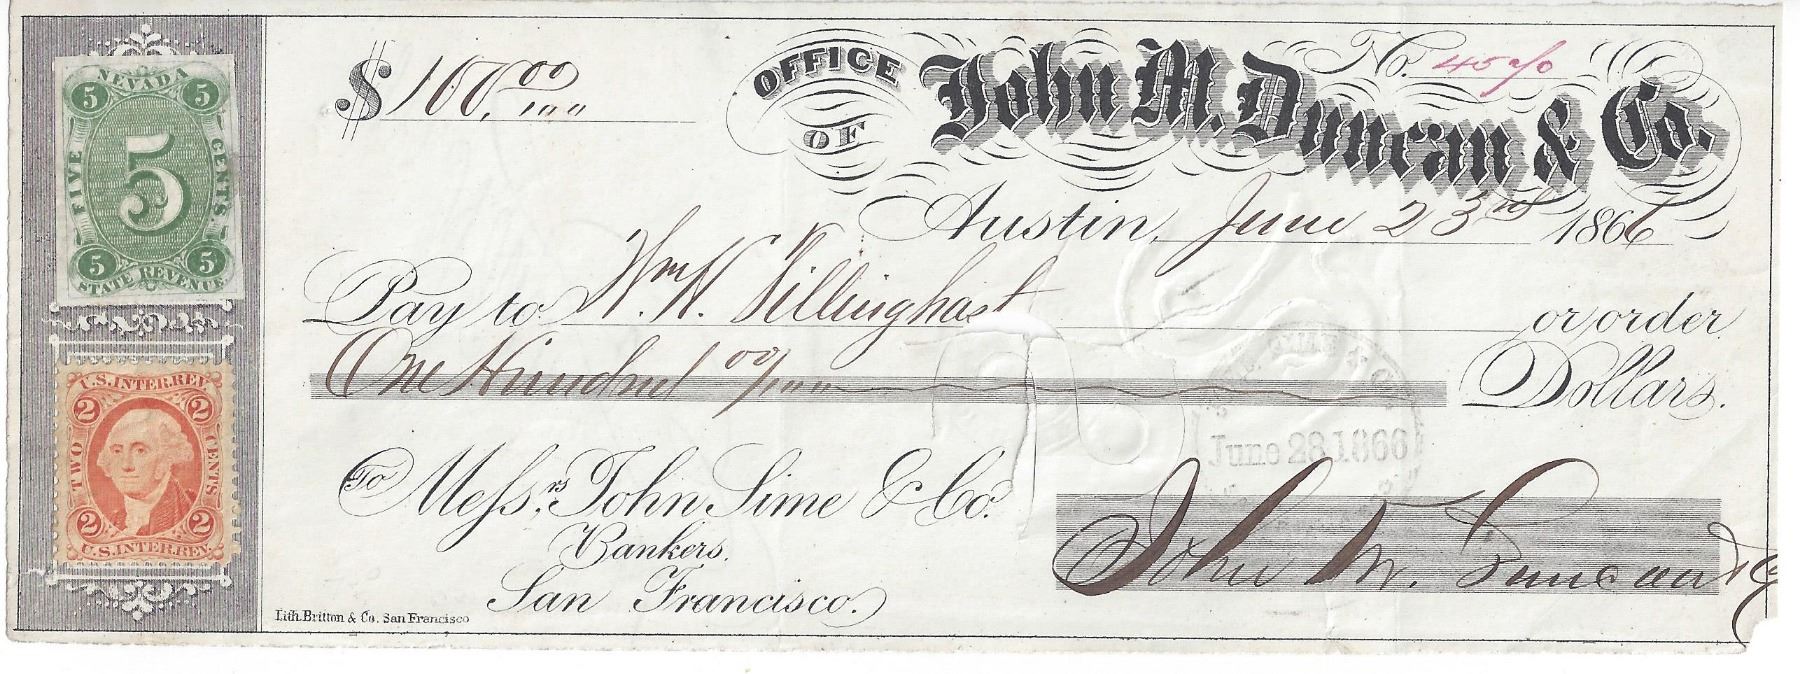 NEVADA
5 5
FIVE 5 CENTS.
5 5
STATE REVENUE
U.S. INTER. REV.
2 2
TWO CENTS
2 2
U.S. INTER. REV.
$ 100.00
OFFICE OF John M. Duncan & Co.
No.
Austin, June 23rd 1866
Pay to Wm H. Tillinghast or order
One Hundred 00/ Dollars.
To Messrs. John Sime & Co.
Bankers.
San Francisco.
June 28 1866
John M. Duncan & Co
Lith. Britton & Co. San Francisco